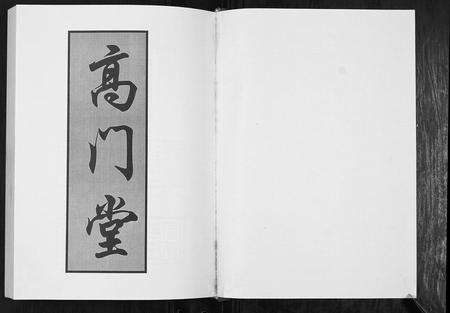 高门堂